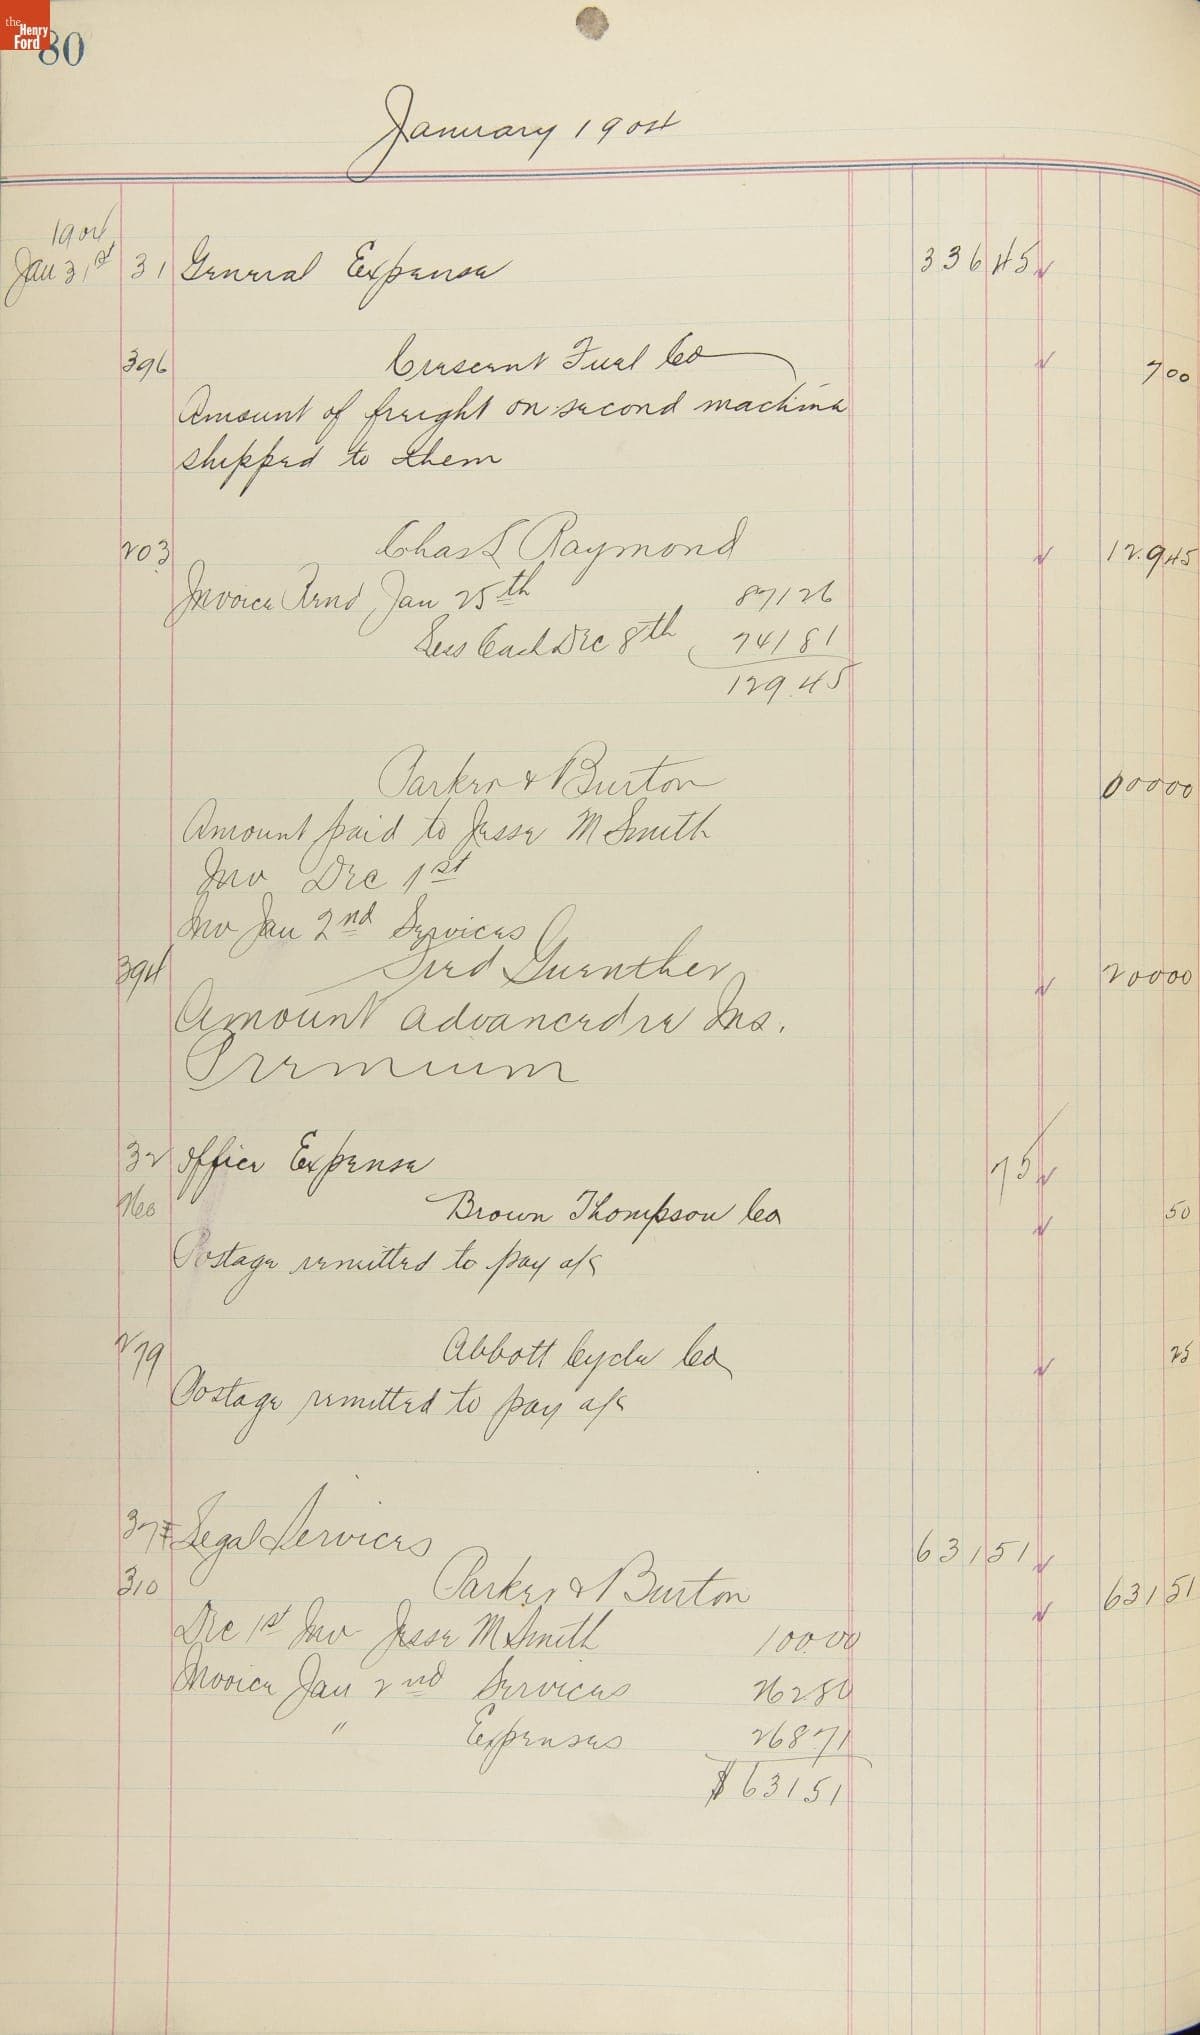 the Henry Ford
80
January 1904
1904
Jan 31st 31 General Expense 336 45
396 Crescent Fuel Co 7 00
Amount of freight on second machine
shipped to them
203 Chas L Raymond 129 45
Invoice Rend Jan 25th 871 26
Less Cash Dec 8th 741 81
129.45
Parker & Burton 000 00
Amount paid to Jesse M Smith
Inv Dec 1st
Inv Jan 2nd Services
394 Fred Guenther 200 00
Amount advanced re Ins.
Premium
32 Office Expense 75
260 Brown Thompson Co 50
Postage remitted to pay a/c
279 Abbott Cycle Co 25
Postage remitted to pay a/c
37 Legal Services 631 51
310 Parker & Burton 631 51
Dec 1st Inv Jesse M Smith 100.00
Invoice Jan 2nd Services 262 80
" Expenses 268.71
$631 51